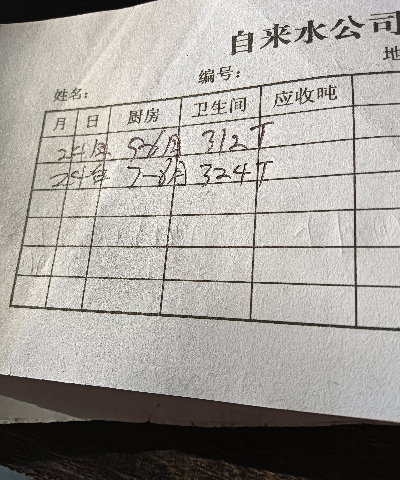 自来水公司
编号： 地
姓名：
月 日 厨房 卫生间 应收吨
24年 5-6月 312T
24年 7-8月 324T